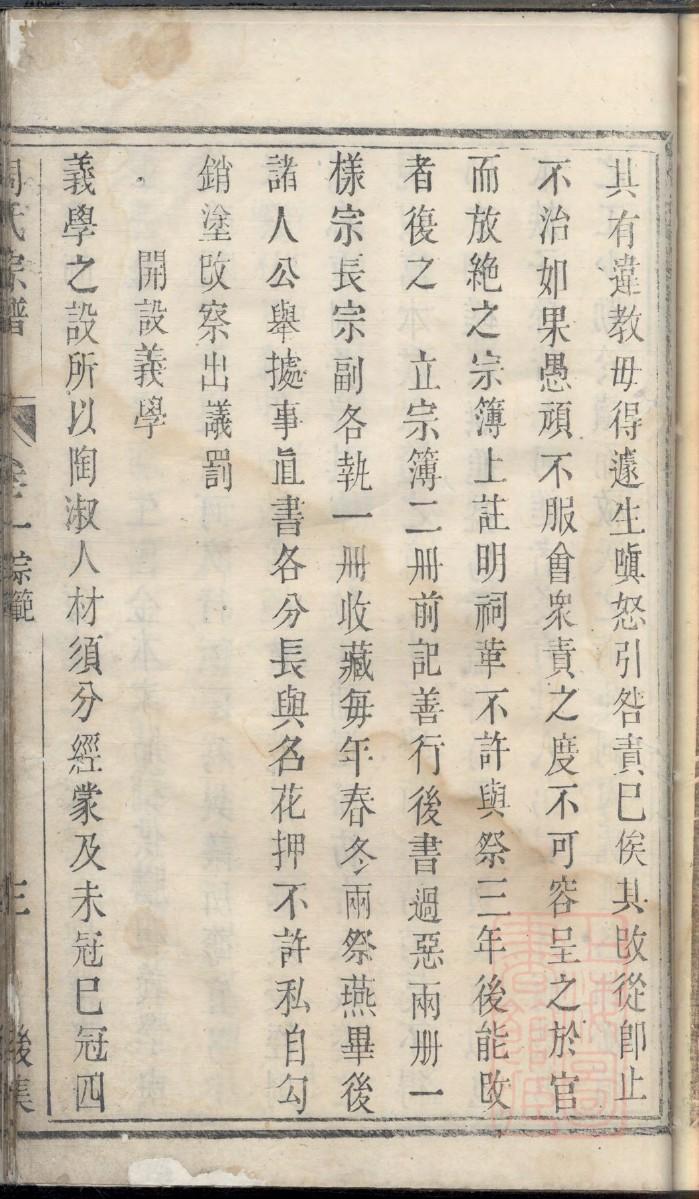 其有違教毋得遽生嗔怒引咎責巳俟其改從卽止
不治如果愚頑不服會衆責之度不可容呈之於官
而放絶之宗簿上註明祠革不許與祭三年後能改
者復之　立宗簿二册前記善行後書過惡兩册一
樣宗長宗副各執一册收藏每年春冬兩祭燕畢後
諸人公舉據事直書各分長與名花押不許私自勾
銷塗改察出議罰
開設義學
義學之設所以陶淑人材須分經蒙及未冠巳冠四
周氏宗譜　卷一　宗範　三　後集